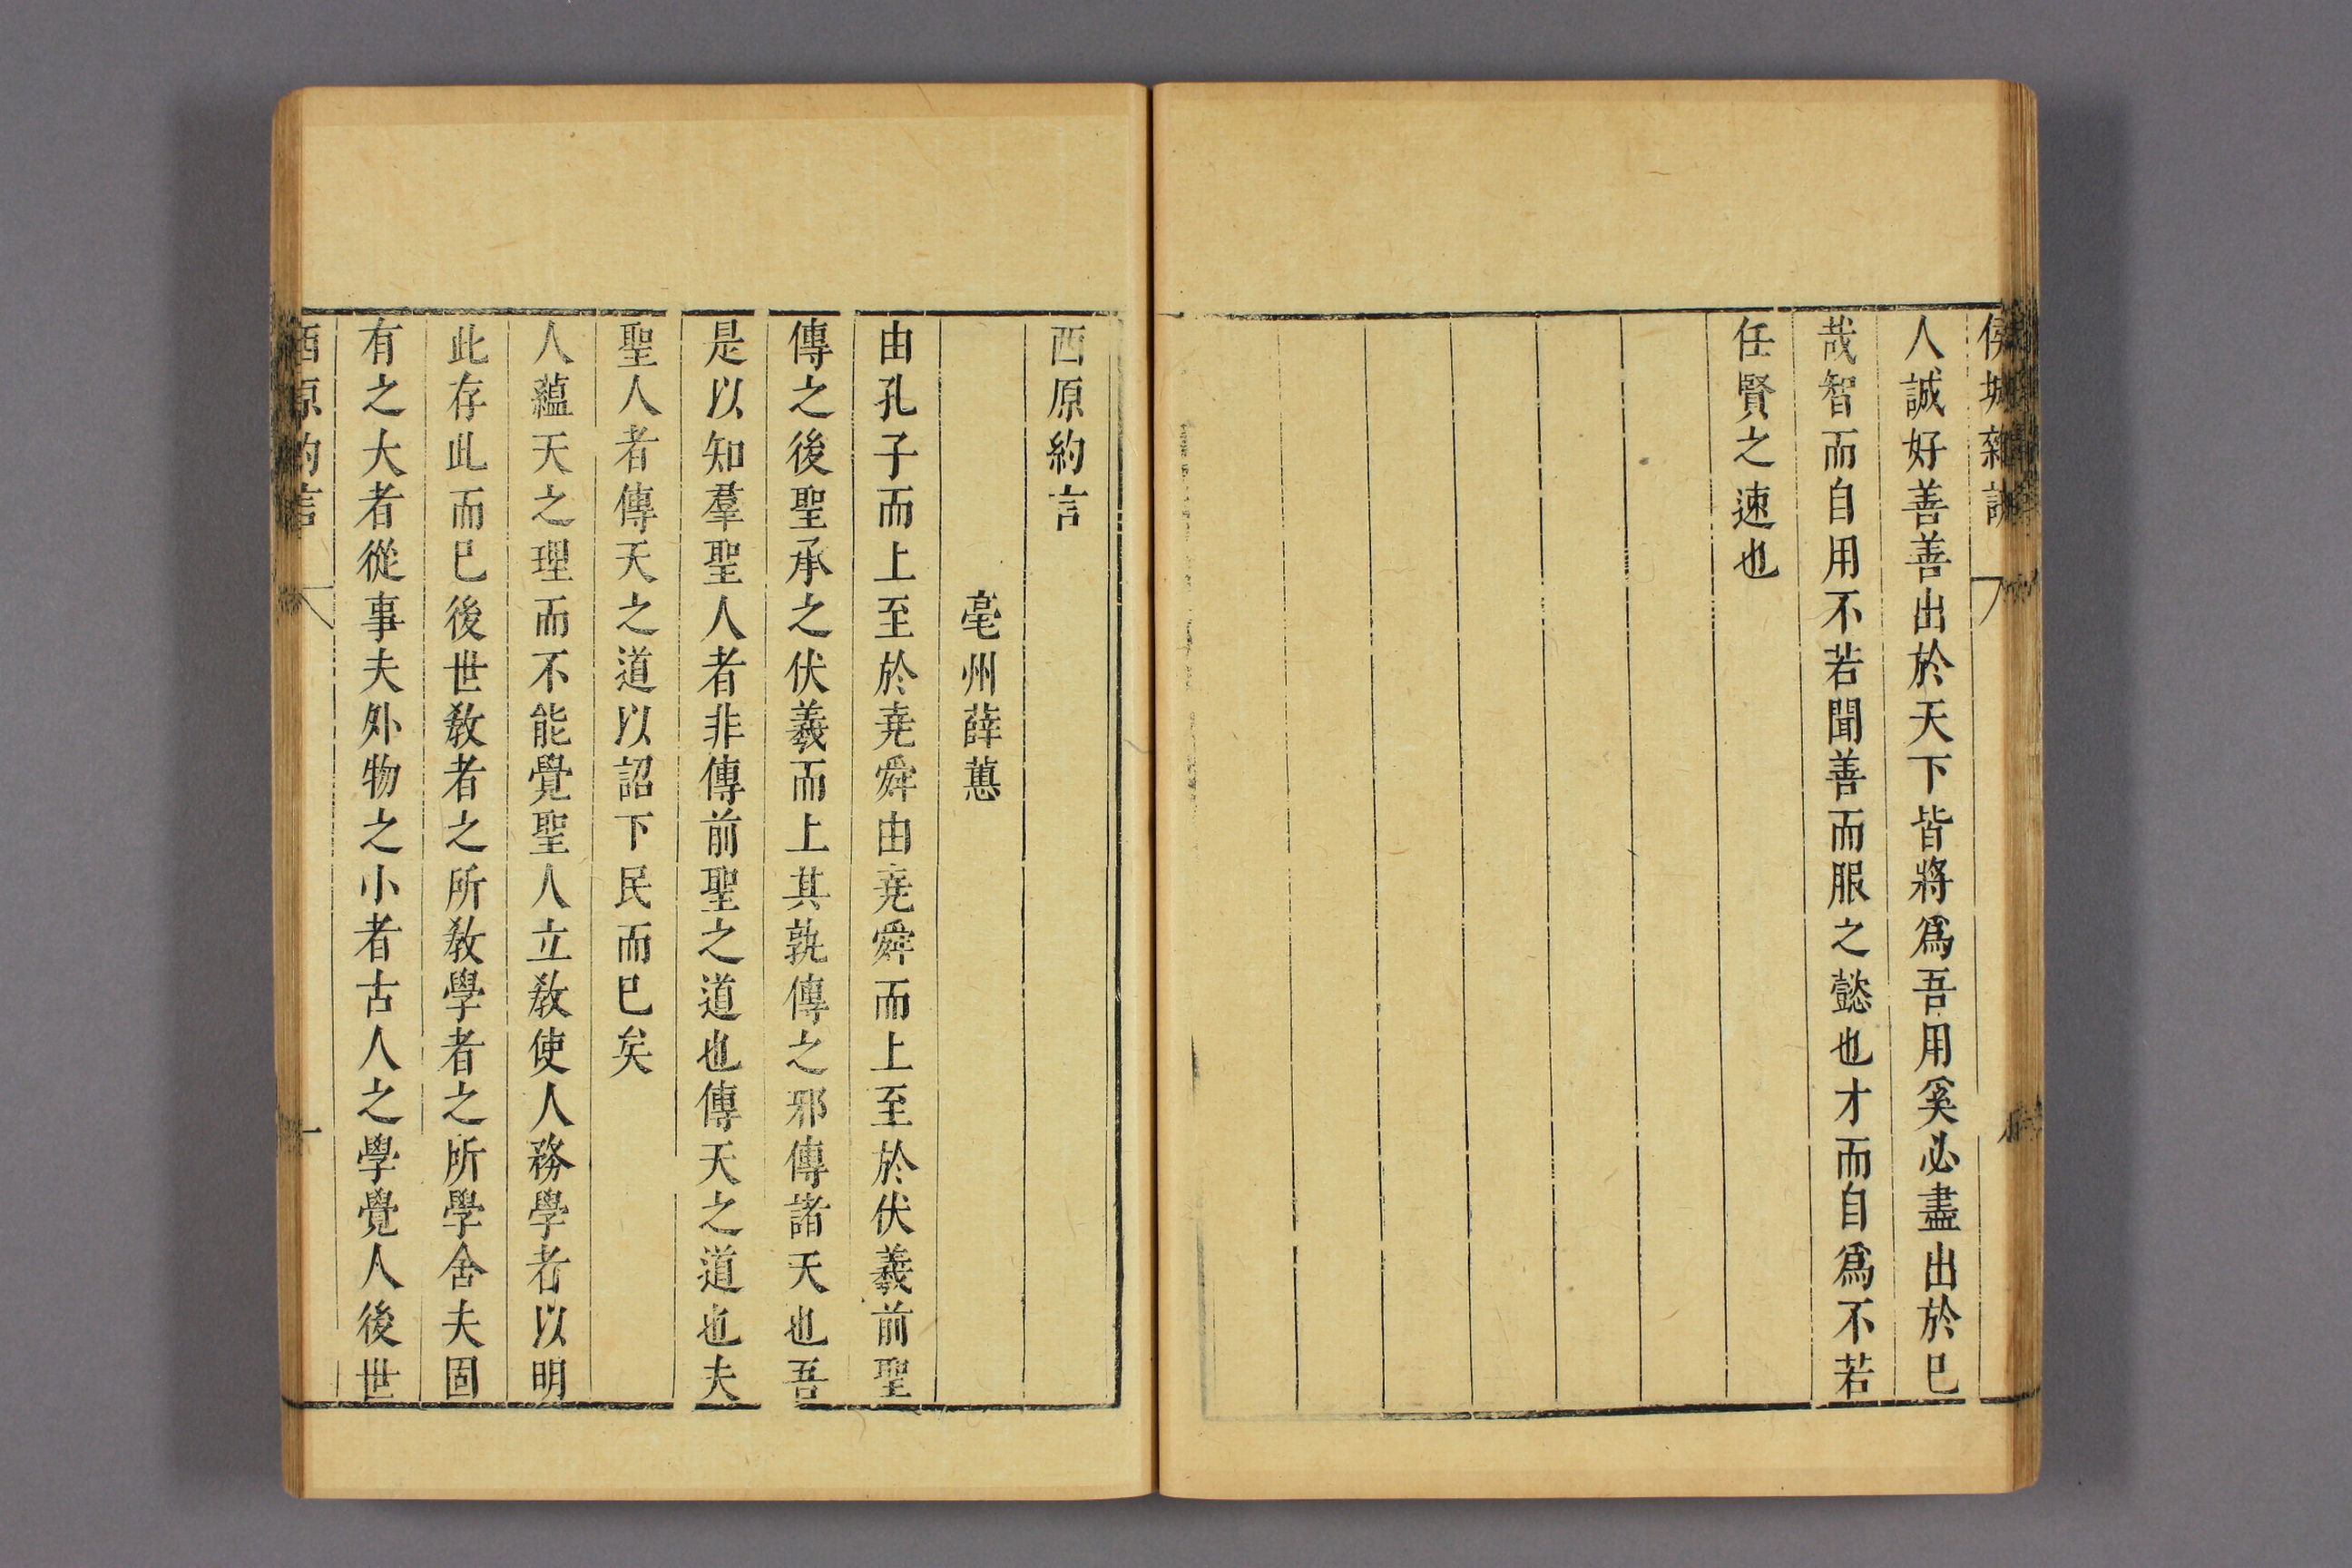 侯城雜誡
人誠好善善出於天下皆將爲吾用奚必盡出於已
哉智而自用不若聞善而服之懿也才而自爲不若
任賢之速也
西原約言
亳州薛蕙
由孔子而上至於堯舜由堯舜而上至於伏羲前聖
傳之後聖承之伏羲而上其孰傳之邪傳諸天也吾
是以知羣聖人者非傳前聖之道也傳天之道也夫
聖人者傳天之道以詔下民而已矣
人蘊天之理而不能覺聖人立敎使人務學者以明
此存此而已後世敎者之所敎學者之所學舍夫固
有之大者從事夫外物之小者古人之學覺人後世
西原約言
一